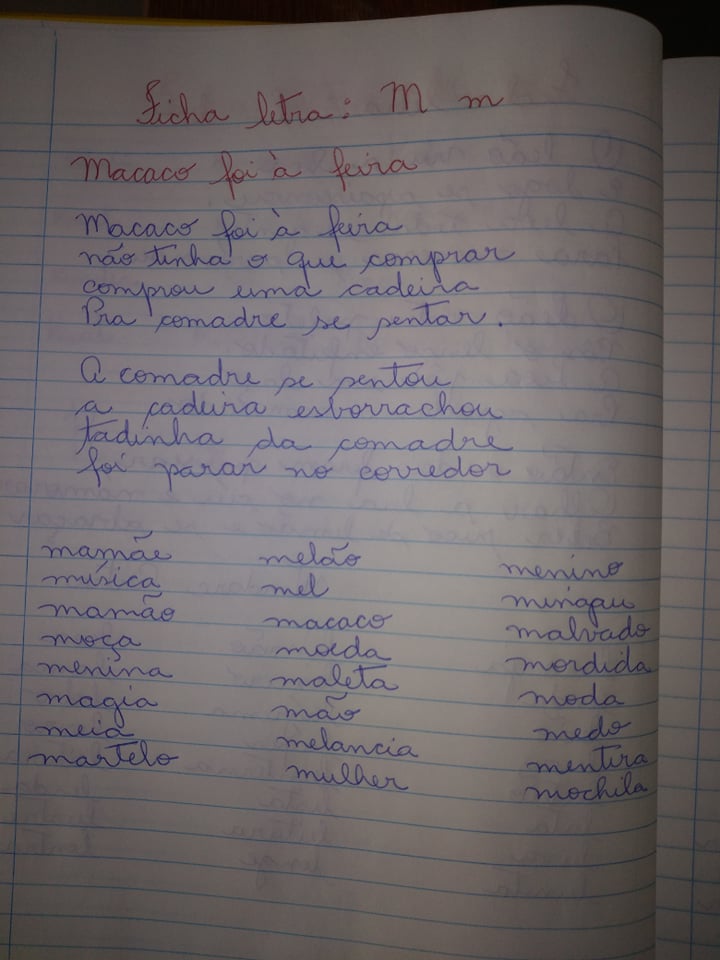 Ficha letra: M m
Macaco foi à feira
Macaco foi à feira
não tinha o que comprar
comprou uma cadeira
Pra comadre se sentar.
A comadre se sentou
a cadeira esborrachou
tadinha da comadre
foi parar no corredor
mamãe melão menino
música mel mingau
mamão macaco malvado
moça moeda mordida
menina maleta moda
magia mão medo
meia melancia mentira
martelo mulher mochila